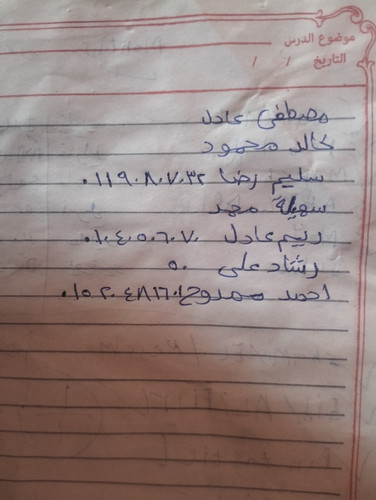 موضوع الدرس
التاريخ / /
مصطفى عادل
خالد محمود
سليم رضا ٠١١٩٠٨٠٧٠٣٢
سهيلة محمد
ريم عادل ٠١٠٤٠٥٠٦٠٧٠
رشاد على ٥٠
احمد ممدوح ٠١٥٢٠٤٨١٦٠١